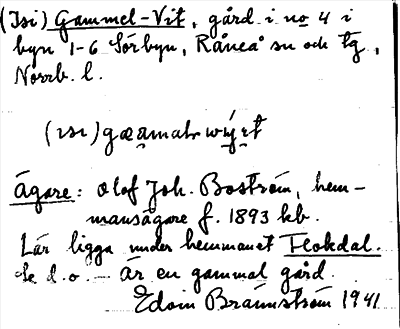 (Isi) Gammel-Vit, gård i no 4 i
byn 1-6 Sörbyn, Råneå sn och tg,
Norrb. l.
(ısı)
Ägare: Olof Joh. Boström, hem-
mansägare f. 1893 kb.
Lär ligga under hemmanet Flokdal.
Se d.o. – Är en gammal gård.
Edvin Brännström 1941